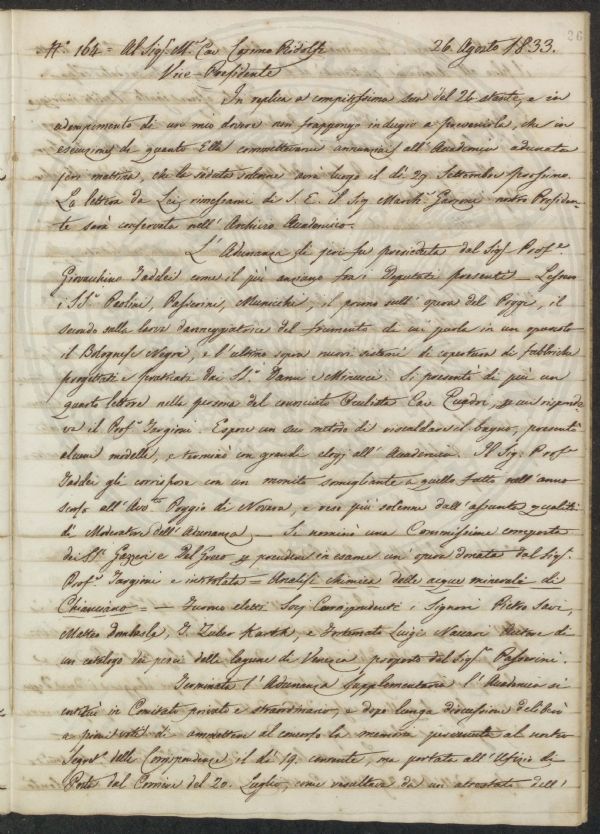 26
N.° 164 = Al Sig.r M.se Cav. Cosimo Ridolfi 26. Agosto 1833.
Vice-Presidente
In replica a compitissima sua del 24 stante, e in
adempimento di un mio dovere non frappongo indugio a prevenirla, che in
esecuzione di quanto Ella commettevami annunziai all'Accademia adunata
jeri mattina, che la seduta solenne avrà luogo il dì 29 Settembre prossimo.
La lettera da Lei rimessami di S. E. il Sig. March.e Garzoni nostro Presiden-
te sarà conservata nell'Archivio Accademico.
L'Adunanza di jeri fu presieduta dal Sig.r Prof.e
Giovacchino Taddei come il più anziano fra i Deputati presenti. Lessero
i SS.ri Paolini, Passerini, Municchi, il primo sull'opera del Poggi, il
secondo sulla larva danneggiatrice del frumento di cui parla in un opuscolo
il Bolognese Negri, e l'ultimo sopra nuovi sistemi di copertura di fabbriche
progettati e praticati dai SS.ri e Minucci. Si presentò di più un
quarto lettore nella persona del rinunciato Oculista Cav. Quadri, cui risponde-
va il Prof.e Targioni. Espose un suo metodo di riscaldare il bagno, presentò
alcuni modelli, e terminò con grandi elogj all'Accademia. Il Sig. Prof.e
Taddei gli corrispose con un monito somigliante a quello fatto nell'anno
scorso all'Avv.to Poggio di Novara, e reso più solenne dall'assunta qualità
di Moderatore dell'Adunanza. Si nominò una Commissione composta
dei SS.ri Gazzeri e Del Greco prendere in esame un'opera donata dal Sig.r
Prof.e Targioni e intitolata = Analisi chimica delle acque minerali di
Chianciano = Furono eletti Socj Corrispondenti i Signori Pietro Savi,
Matteo Dombasle, J. Zuber Karth, e Fortunato Luigi Naccari Autore di
un catalogo dei pesci delle lagune di Venezia, proposto dal Sig.r Passerini.
Terminata l'Adunanza supplementaria l'Accademia si
costituì in Comitato privato e straordinario, e dopo lunga discussione deliberò
a pieni voti di ammettere al concorso la memoria pervenuta al nostro
Segret.o delle Corrispondenze il dì 19. corrente, ma portata all'Ufizio di
Posta dal Corriere del 20. Luglio, come resultava da un attestato dell'